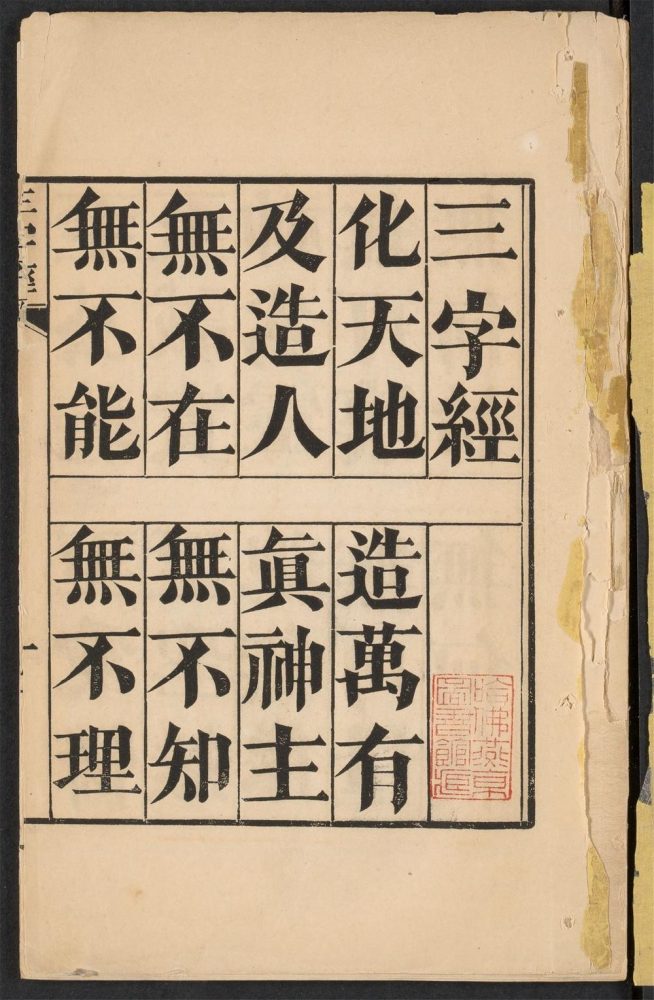 三字經
化天地 造萬有
及造人 眞神主
無不在 無不知
無不能 無不理
三字經
一
哈佛燕京
圖書館藏